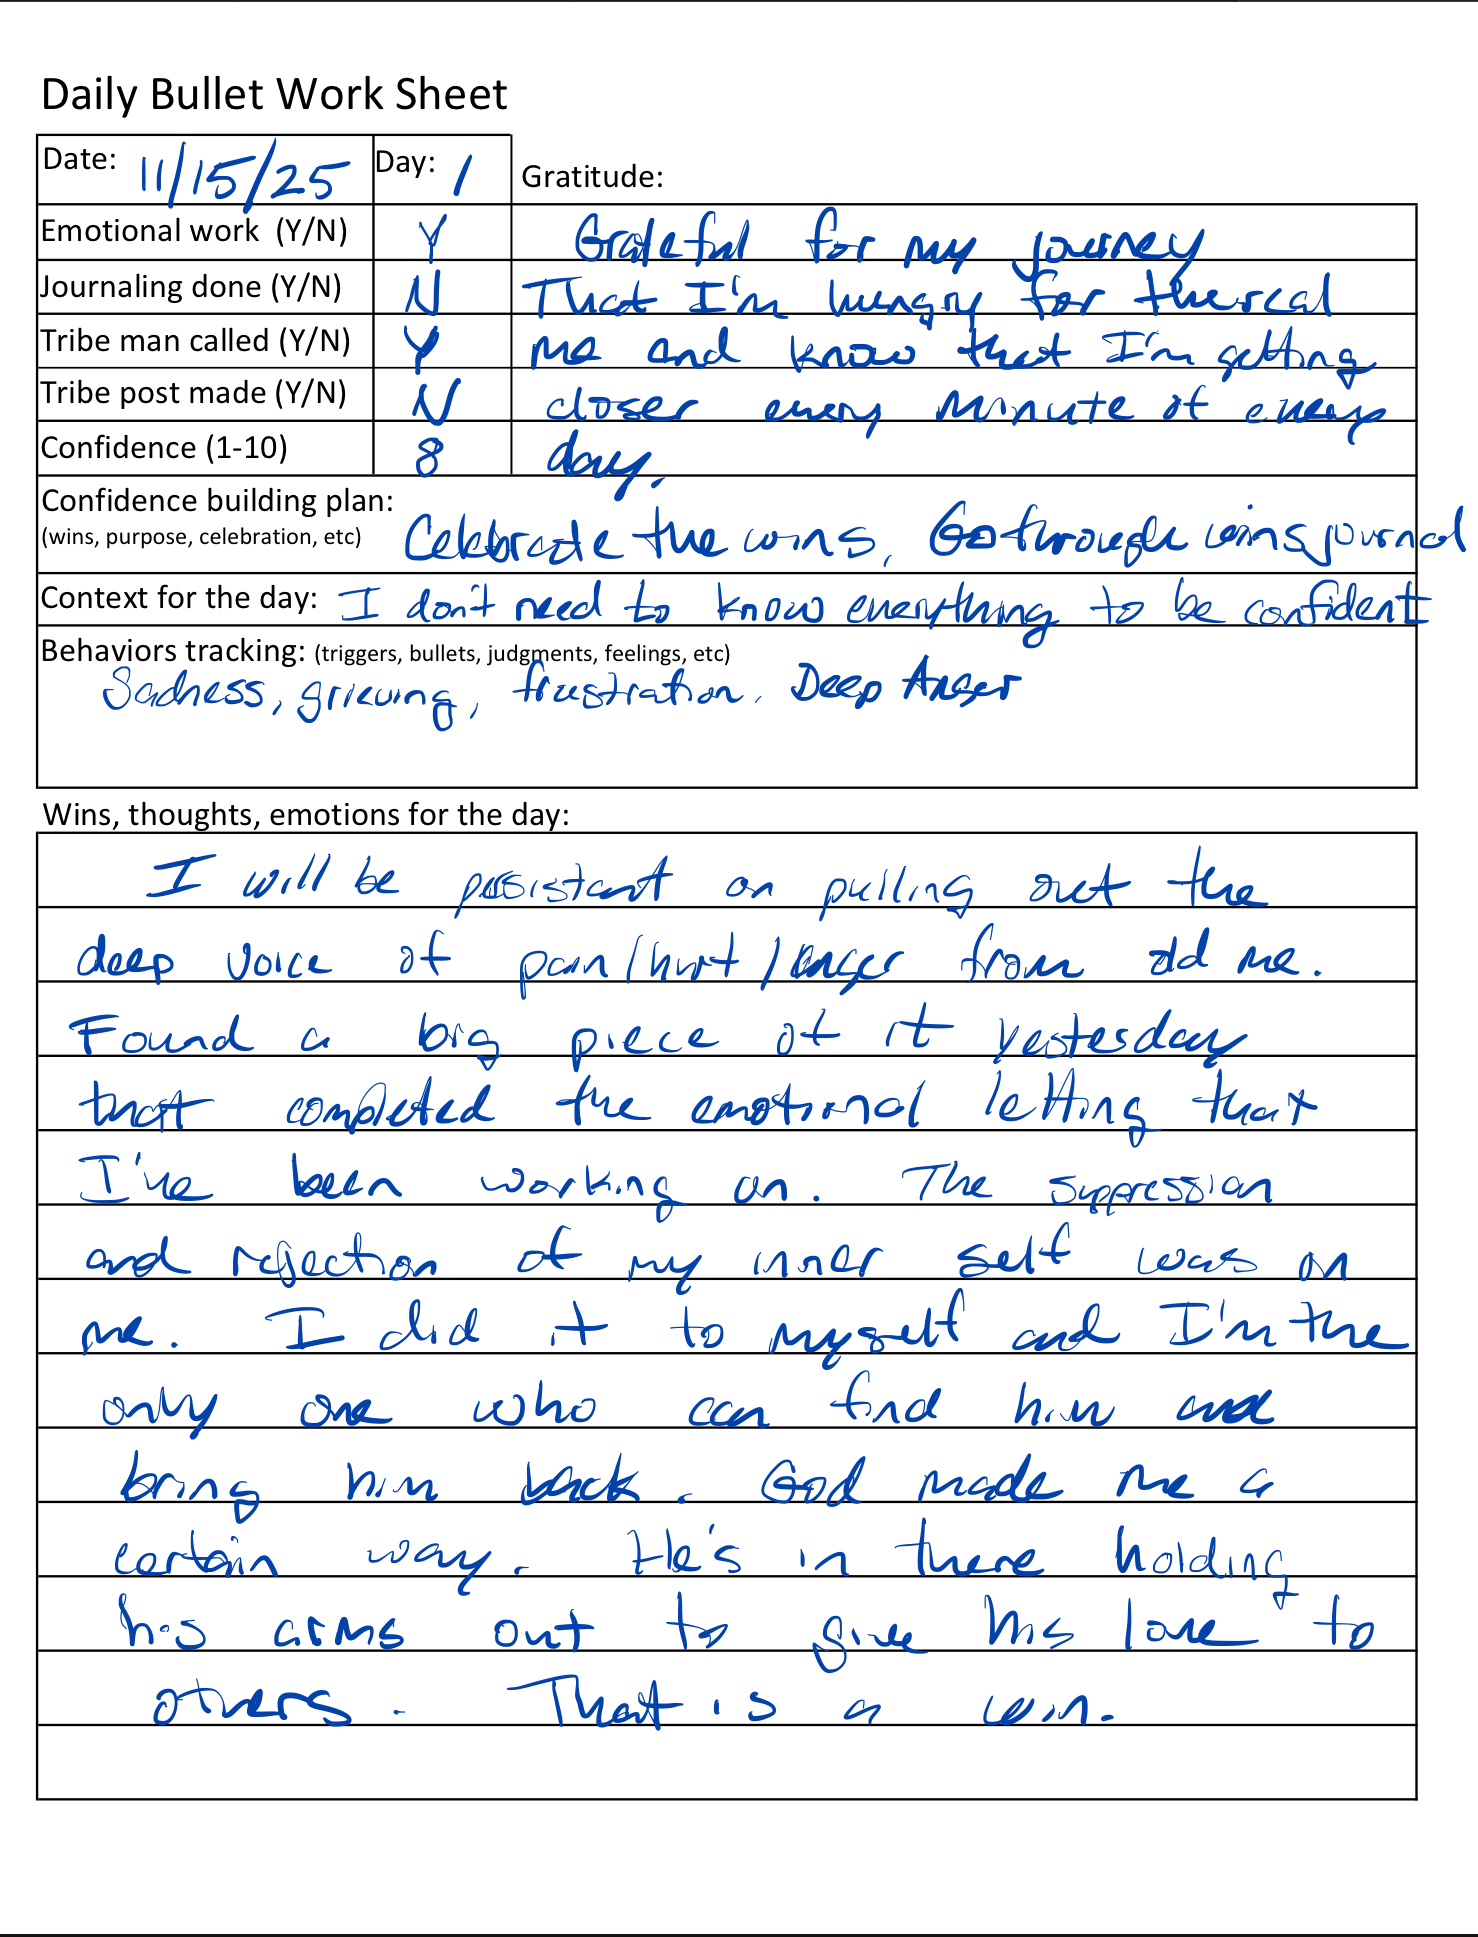 Daily Bullet Work Sheet
Date: 11/15/25 Day: 1 Gratitude:
Emotional work (Y/N) Y Grateful for my journey
Journaling done (Y/N) N That I'm hungry for the real
Tribe man called (Y/N) Y me and know that I'm getting
Tribe post made (Y/N) N closer every minute of every
Confidence (1-10) 8 day.
Confidence building plan:
(wins, purpose, celebration, etc) Celebrate the wins, Go through wins journal
Context for the day: I don't need to know everything to be confident
Behaviors tracking: (triggers, bullets, judgments, feelings, etc)
Sadness, grieving, frustration, Deep Anger
Wins, thoughts, emotions for the day:
I will be persistant on pulling out the
deep voice of pain/hurt/anger from old me.
Found a big piece of it yestesday
that completed the emotional letting that
I've been working on. The suppression
and rejection of my inner self was on
me. I did it to myself and I'm the
only one who can find him and
bring him back. God made me a
certain way. He's in there holding
his arms out to give his love to
others. That is a win.